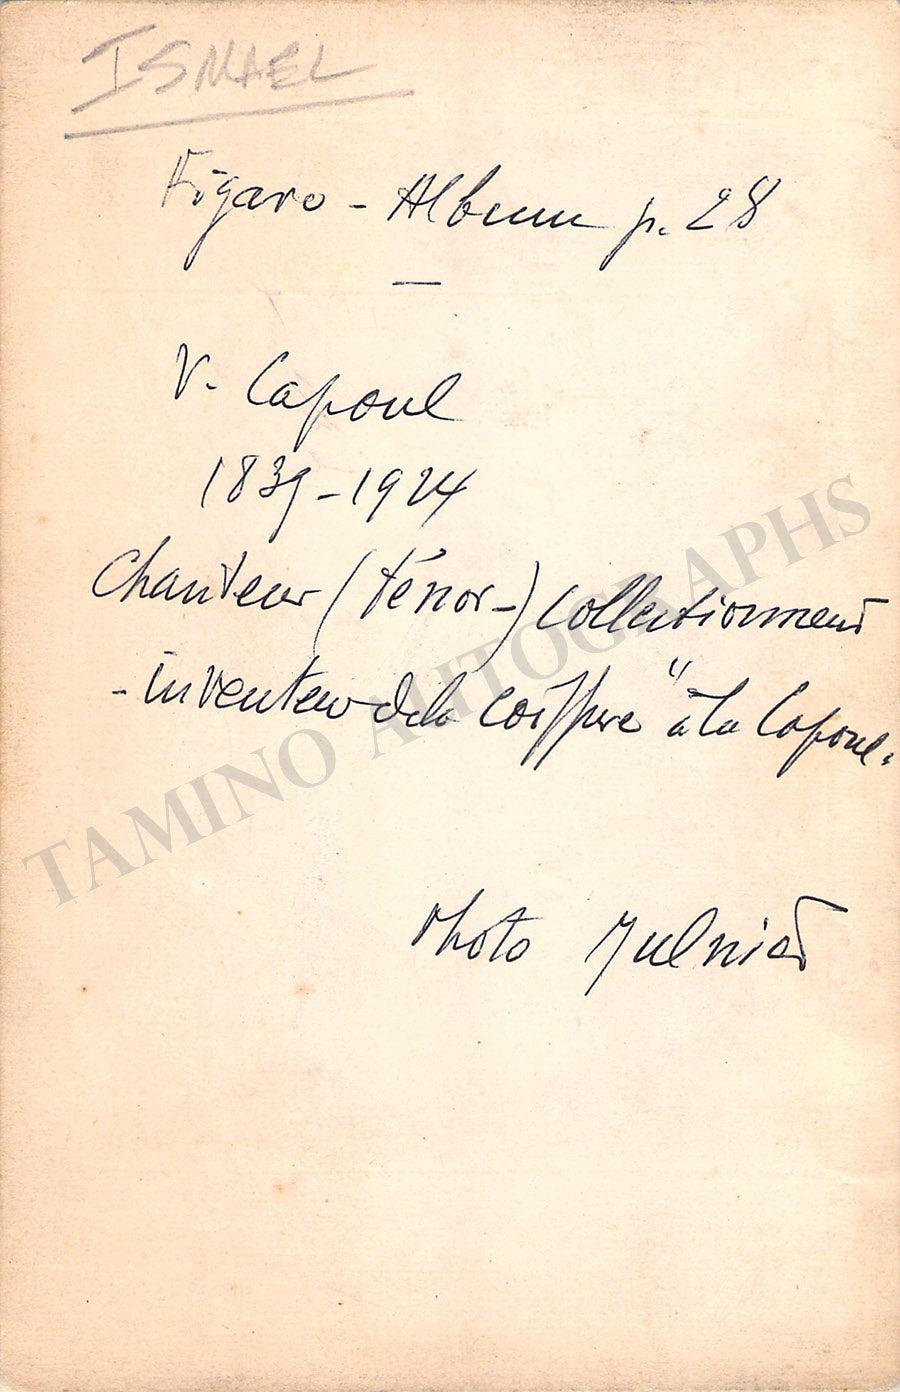 ISMAEL
Figaro - Album p. 28
V. Capoul
1839-1924
Chanteur (ténor-) collectionneur
-inventeur de la coiffure "à la Capoul.
Photo Mulnier
TAMINO AUTOGRAPHS